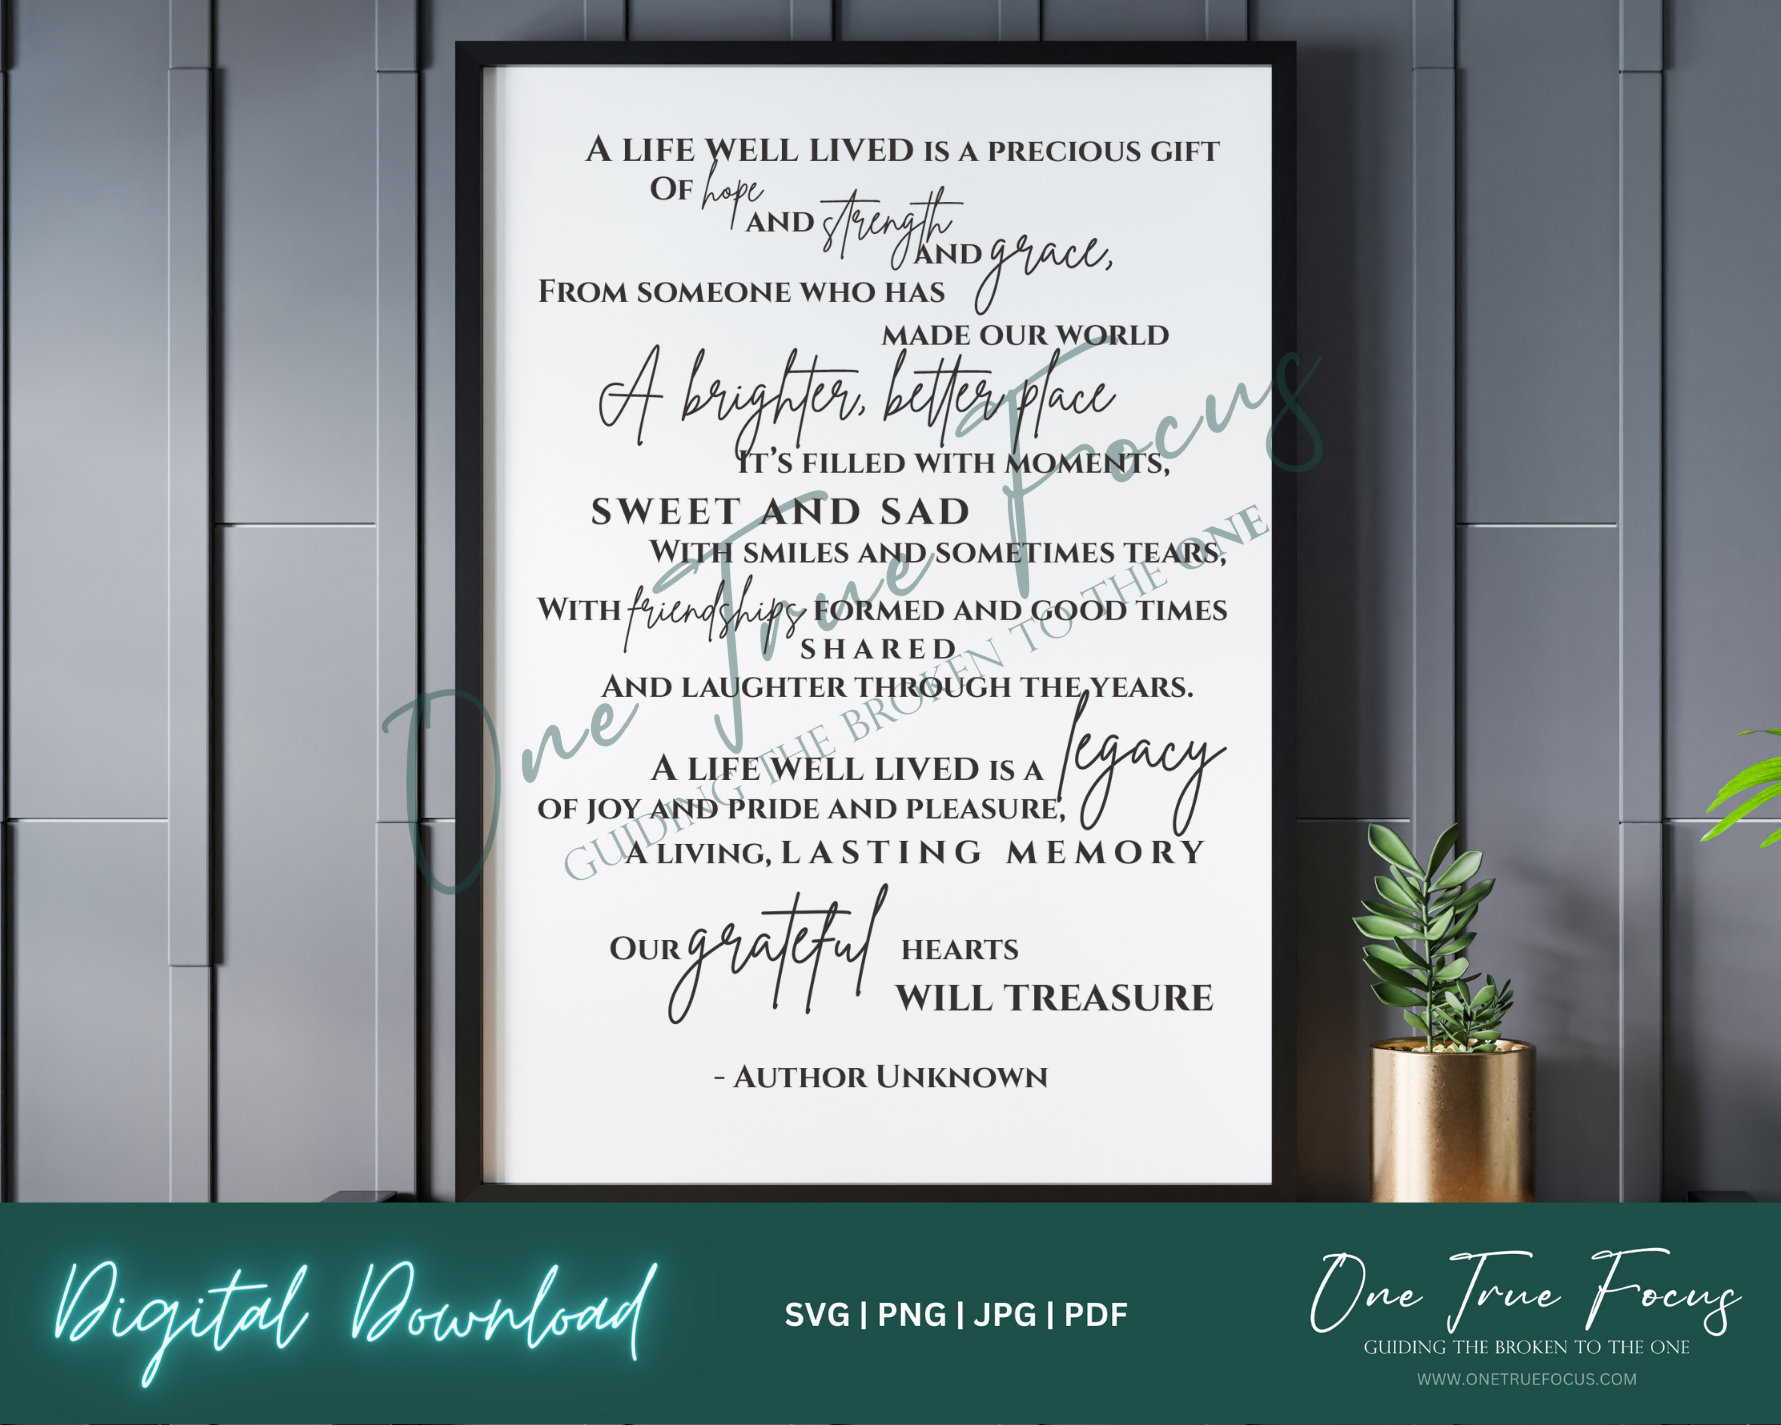 A LIFE WELL LIVED IS A PRECIOUS GIFT
OF hope
AND strength
AND grace,
FROM SOMEONE WHO HAS
MADE OUR WORLD
A brighter, better place
IT'S FILLED WITH MOMENTS,
SWEET AND SAD
WITH SMILES AND SOMETIMES TEARS,
WITH friendships FORMED AND GOOD TIMES
SHARED
AND LAUGHTER THROUGH THE YEARS.
A LIFE WELL LIVED IS A legacy
OF JOY AND PRIDE AND PLEASURE,
A LIVING, LASTING MEMORY
OUR grateful HEARTS
WILL TREASURE
- AUTHOR UNKNOWN
One True Focus
GUIDING THE BROKEN TO THE ONE
Digital Download
SVG | PNG | JPG | PDF
One True Focus
GUIDING THE BROKEN TO THE ONE
WWW.ONETRUEFOCUS.COM